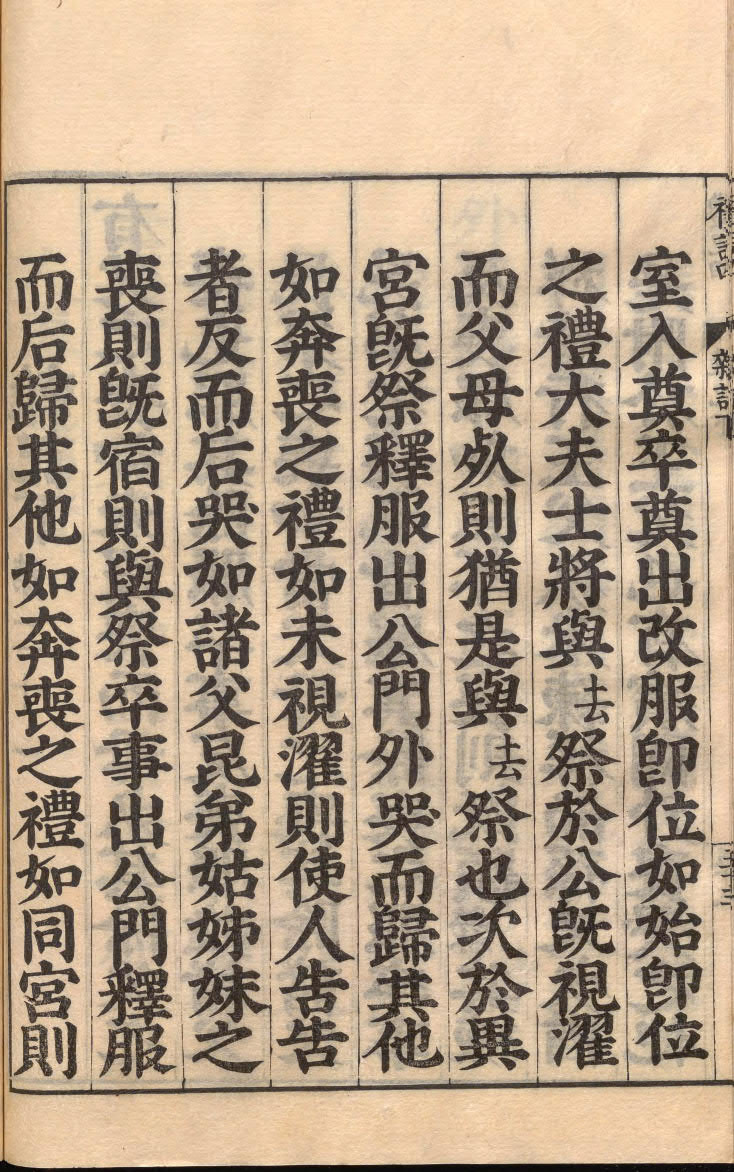 禮記 雜記下
室入奠卒奠出改服卽位如始卽位
之禮大夫士將與去祭於公旣視濯
而父母㱔則猶是與去祭也次於異
宮旣祭釋服出公門外哭而歸其他
如奔喪之禮如未視濯則使人告告
者反而后哭如諸父昆弟姑姊妹之
喪則旣宿則與祭卒事出公門釋服
而后歸其他如奔喪之禮如同宮則